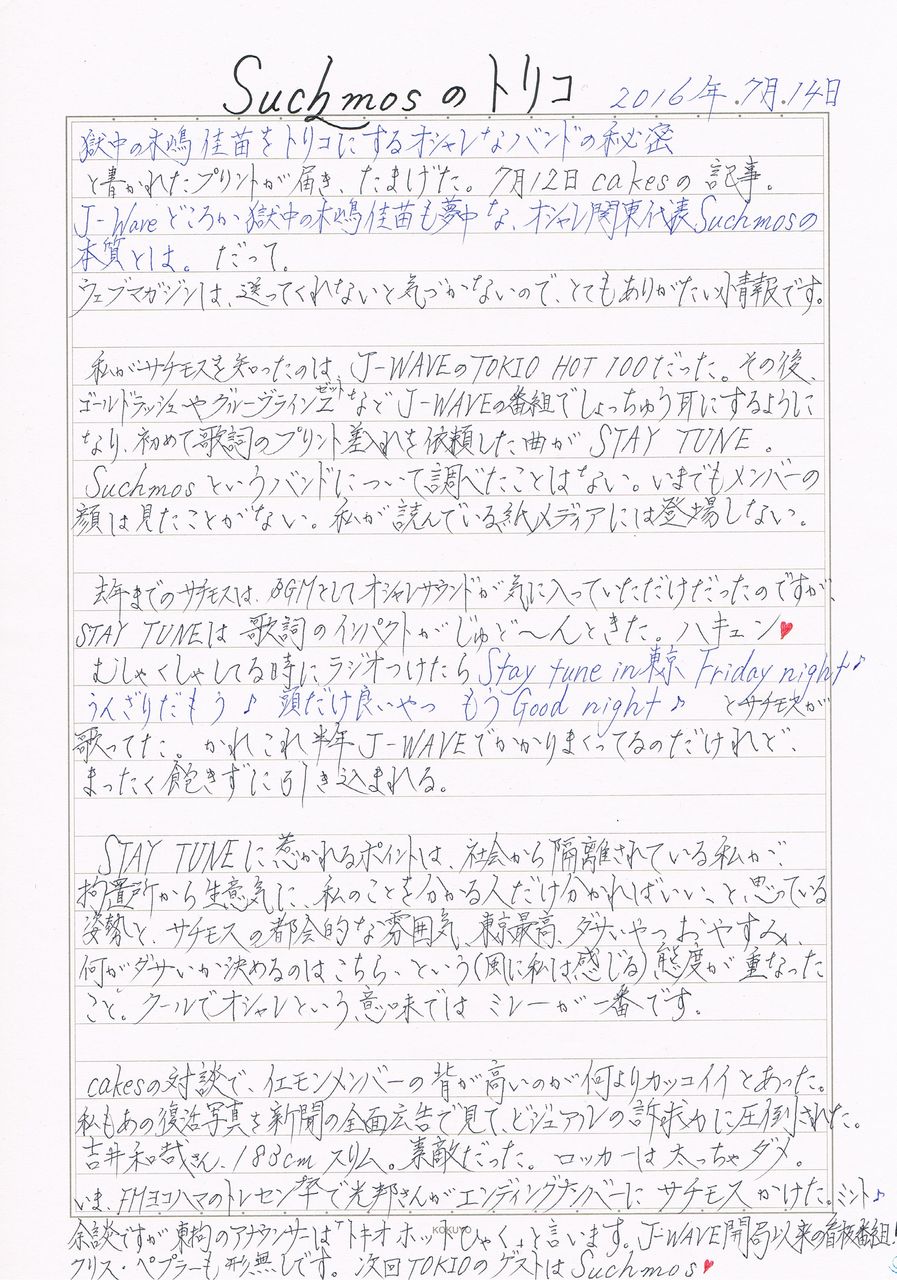 Suchmosのトリコ 2016年.7月.14日
獄中の木嶋佳苗をトリコにするオシャレなバンドの秘密
と書かれたプリントが届き、たまげた。7月12日cakesの記事。
J-Waveどころか獄中の木嶋佳苗も夢中な、オシャレ関東代表Suchmosの
本質とは。だって。
ウェブマガジンは、送ってくれないと気づかないので、とてもありがたい情報です。
私がサチモスを知ったのは、J-WAVEのTOKIO HOT 100だった。その後、
ゴールドラッシュやグルーヴラインZ ゼット などJ-WAVEの番組でしょっちゅう耳にするように
なり、初めて歌詞のプリント差入れを依頼した曲がSTAY TUNE。
Suchmosというバンドについて調べたことはない。いまでもメンバーの
顔は見たことがない。私が読んでいる紙メディアには登場しない。
去年までのサチモスは、BGMとしてオシャレサウンドが気に入っていただけだったのですが、
STAY TUNEは歌詞のインパクトがじゅど〜んときた。ハキュン♥
むしゃくしゃしてる時にラジオつけたらStay tune in東京 Friday night♪
うんざりだもう♪ 頭だけ良いやつ もうGood night♪ とサチモスが
歌ってた。かれこれ半年J-WAVEでかかりまくってるのだけれど、
まったく飽きずに引き込まれる。
STAY TUNEに惹かれるポイントは、社会から隔離されている私が、
拘置所から生意気に、私のことを分かる人だけ分かればいい、と思っている
姿勢と、サチモスの都会的な雰囲気、東京最高、ダサいやつおやすみ、
何がダサいか決めるのはこちら、という(風に私は感じる)態度が重なった
こと。クールでオシャレという意味ではミレーが一番です。
cakesの対談で、イエモンメンバーの背が高いのが何よりカッコイイとあった。
私もあの復活写真を新聞の全面広告で見て、ビジュアルの訴求力に圧倒された。
吉井和哉さん、183cmスリム。素敵だった。ロッカーは太っちゃダメ。
いま、FMヨコハマのトレセン卒で光邦さんがエンディングナンバーにサチモスかけた。ミント♪
余談ですが東拘のアナウンサーは「トキオホットひゃく」と言います。J-WAVE開局以来の看板番組!
クリス・ペプラーも形無しです。次回TOKIOのゲストはSuchmos♥
KOKUYO